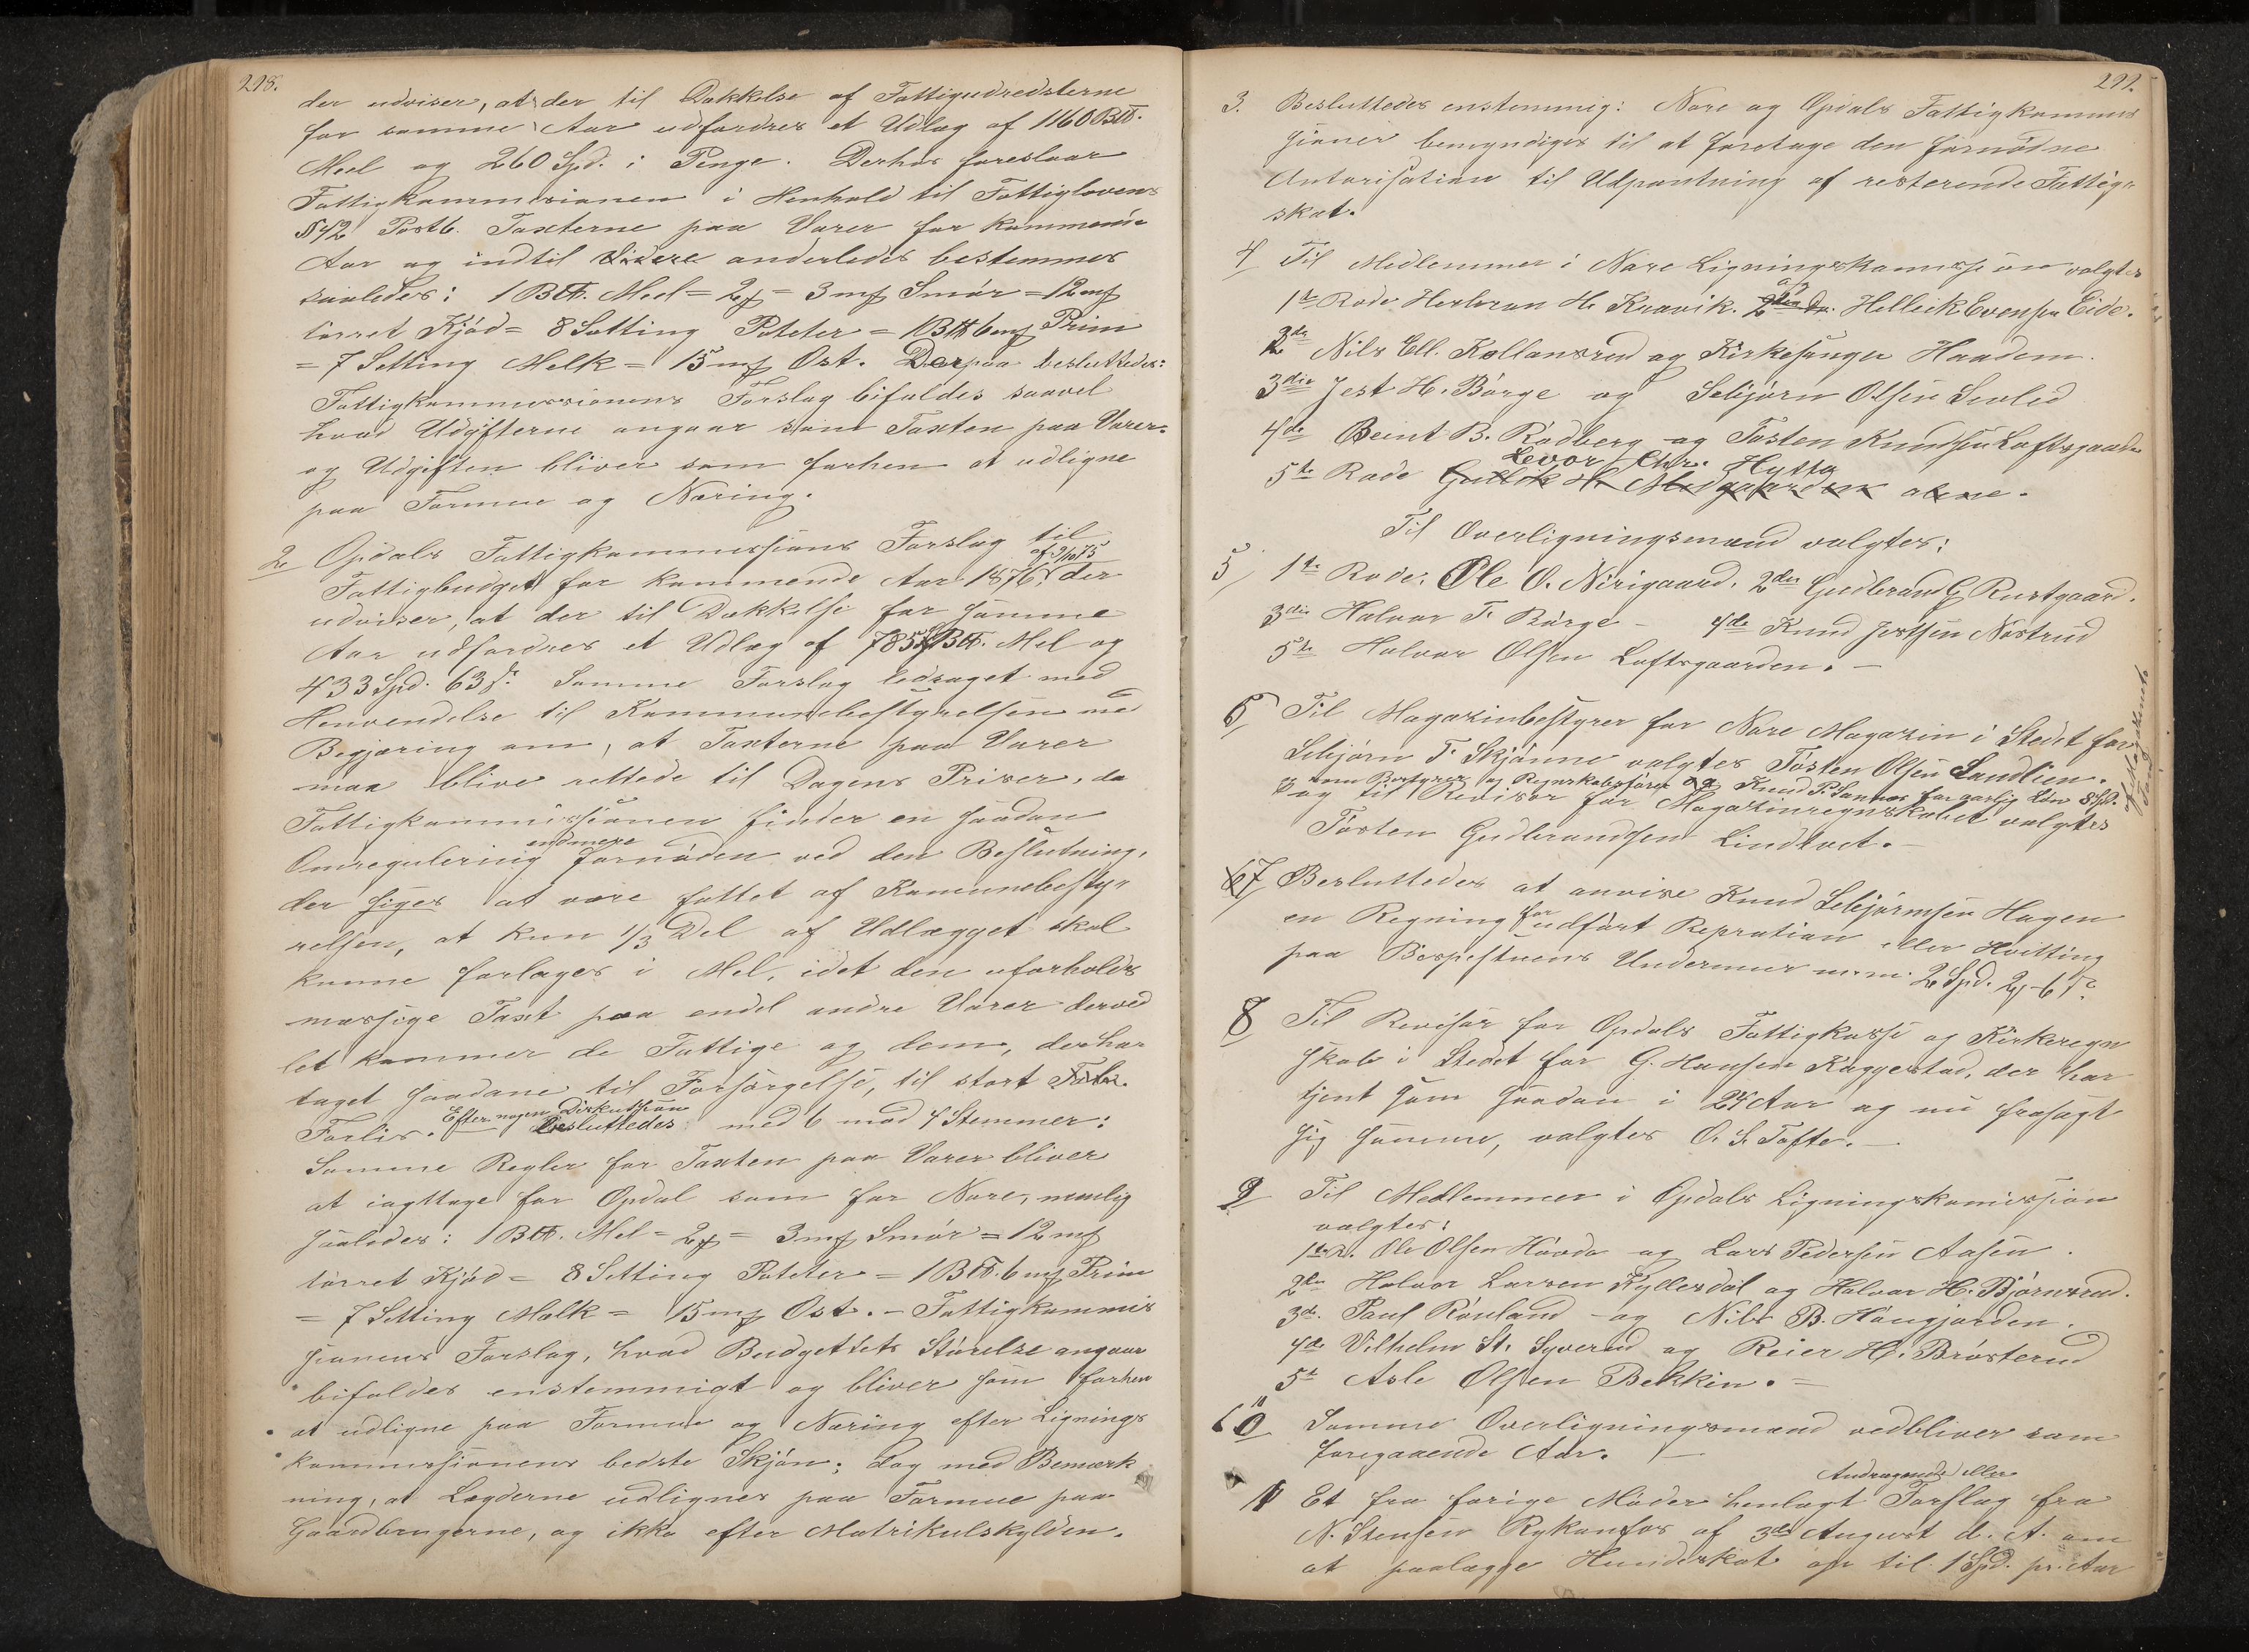 298.
der udviser, at der til Dækkelse af Fattigudredsterne
for samme Aar udfordres et Udlæg af 1160 B℔.
Meel og 260 Spd. i Penge. Derhos foreslaar
Fattigkommissionen i Henhold til Fattiglovens
§42 Post 6. Taxterne paa Varer for kommende
Aar og indtil videre anderledes bestemmes
saaledes: 1 B℔. Meel = = 3 mk Smör = 12 mk
törret Kjöd = 8 Sætting Poteter = 1 B℔ 6 mk Prim
= 7 Setting Melk = 15 mk Ost. Derpaa besluttedes:
Fattigkommissionens Forslag bifaldes saavel
hvad Udgifterne angaar som Taxten paa Varer
og Udgiften bliver som forhen at udligne
paa Formue og Næring.
2 Opdals Fattigkommissions Forslag til
af 9/10 75
Fattigbudget for kommende Aar 1876 der
udviser, at der til Dækkelse for samme
Aar udfordres et Udlæg af 785 B℔. Mel og
433 Spd. 63 s. Samme Forslag ledsaget med
Henvendelse til Kommunebestyrelsen med
Begjæring om, at Taxterne paa Varer
maa blive rettede til Dagens Priser, da
Fattigkommissionen finder en saadan
endmere
Omregulering fornöden ved den Beslutning,
der siges at være fattet af Kommunebesty-
relsen, at kun 1/3 Del af Udlægget skal
kunne forlages i Mel, idet den uforholds
mæssige Taxt paa endel andre Varer derved
let kommer de Fattige og dem, der har
taget saadane til Forsörgelse, til stort
Forlis. Efter nogen Diskussion
Besluttedes med 6 mod 4 Stemmer:
Samme Regler for Taxten paa Varer bliver
at iagttage for Opdal som for Nore, nemlig
saaledes: 1 B℔. Mel = = 3 mk Smör = 12 mk
törret Kjöd = 8 Setting Poteter = 1 B℔. 6 mk Prim
= 7 Setting Melk = 15 mk Ost. - Fattigkommis
sionens Forslag, hvad Budgettets Störelse angaar
bifaldes enstemmigt og bliver som forhen
at udligne paa Formue og Næring efter Lignings
kommissionens bedste Skjön; dog med Bemærk
ning, at Lægderne udlignes paa Formue paa
Gaardbrugerne, og ikke efter Matrikulskylden.
299.
3. Besluttedes enstemmig: Nore og Opdals Fattigkommis
sioner bemyndiges til at foretage den fornödne
Autorisation til Udpantning af resterende Fattig-
skat.
4 Til Medlemmer i Nore Ligningskommission valgtes
1te Rode Herbran H. Kravik. og Helleik Evensen Eide.
2den Nils Ell. Kollansrud og Kirkesanger Haadem.
3die Jest H. Börge og Sebjörn Olsen Sevled
4de Bernt B. Rödberg og Tosten Knudsen Loftsgaarden
Levor Chr. Hytta
5te Rode Gullik H. Medgaarden alene.
Til Overligningsmænd valgtes:
5 1te Rode. Ole O. Nörigaard. 2den Gudbrand G. Rustgaard.
3die Halvor T. Börge - 4de Knud Jostsen Nöstrud
5te Halvor Olsen Loftsgaarden. -
6 Til Magazinbestyrer for Nore Magazin i Stedet for
Sebjörn T. Skjönne valgtes Tosten Olsen Sandlien.
som Bestyrer og Regnskabsförer Knud P. Sannes for aarlig Lön 8 Spd.
og til Revisor for Magazinregnskabet valgtes
Tosten Gudbrandsen Lindtvet. -
7 Besluttedes at anvise Knud Sebjörnsen Hagen
en Regning for udfört Repration eller Hvitting
paa Bispestuens Undermur m.m. 2 Spd. 2 - 6 s.
8 Til Revisor for Opdals Fattigkasse og Kirkeregn
skab i Stedet for G. Hansen Raggestad, der har
tjent som saadan i 24 Aar og nu frasagt
sig samme, valgtes O. S. Tofte. -
9 Til Medlemmer i Opdals Ligningskomission
valgtes:
1te R. Ole Olsen Hövda og Lars Pedersen Aasen.
2den Halvor Larsen Kyllesdal og Halvor H. Björnsrud.
3de. Paul Rönland og Nils B. Haugjorden.
4de Vilhelm St. Syverud og Reier H. Brösterud
5te Asle Olsen Bekkin. -
10 Samme Overligningsmænd vedbliver som
foregaaende Aar. -
Andragende eller
11 Et fra forige Möder henlagt Forslag fra
N. Stensen Rykanfos af 3de August d. A. om
at paalægge Hundeskat op til 1 Spd. pr. Aar